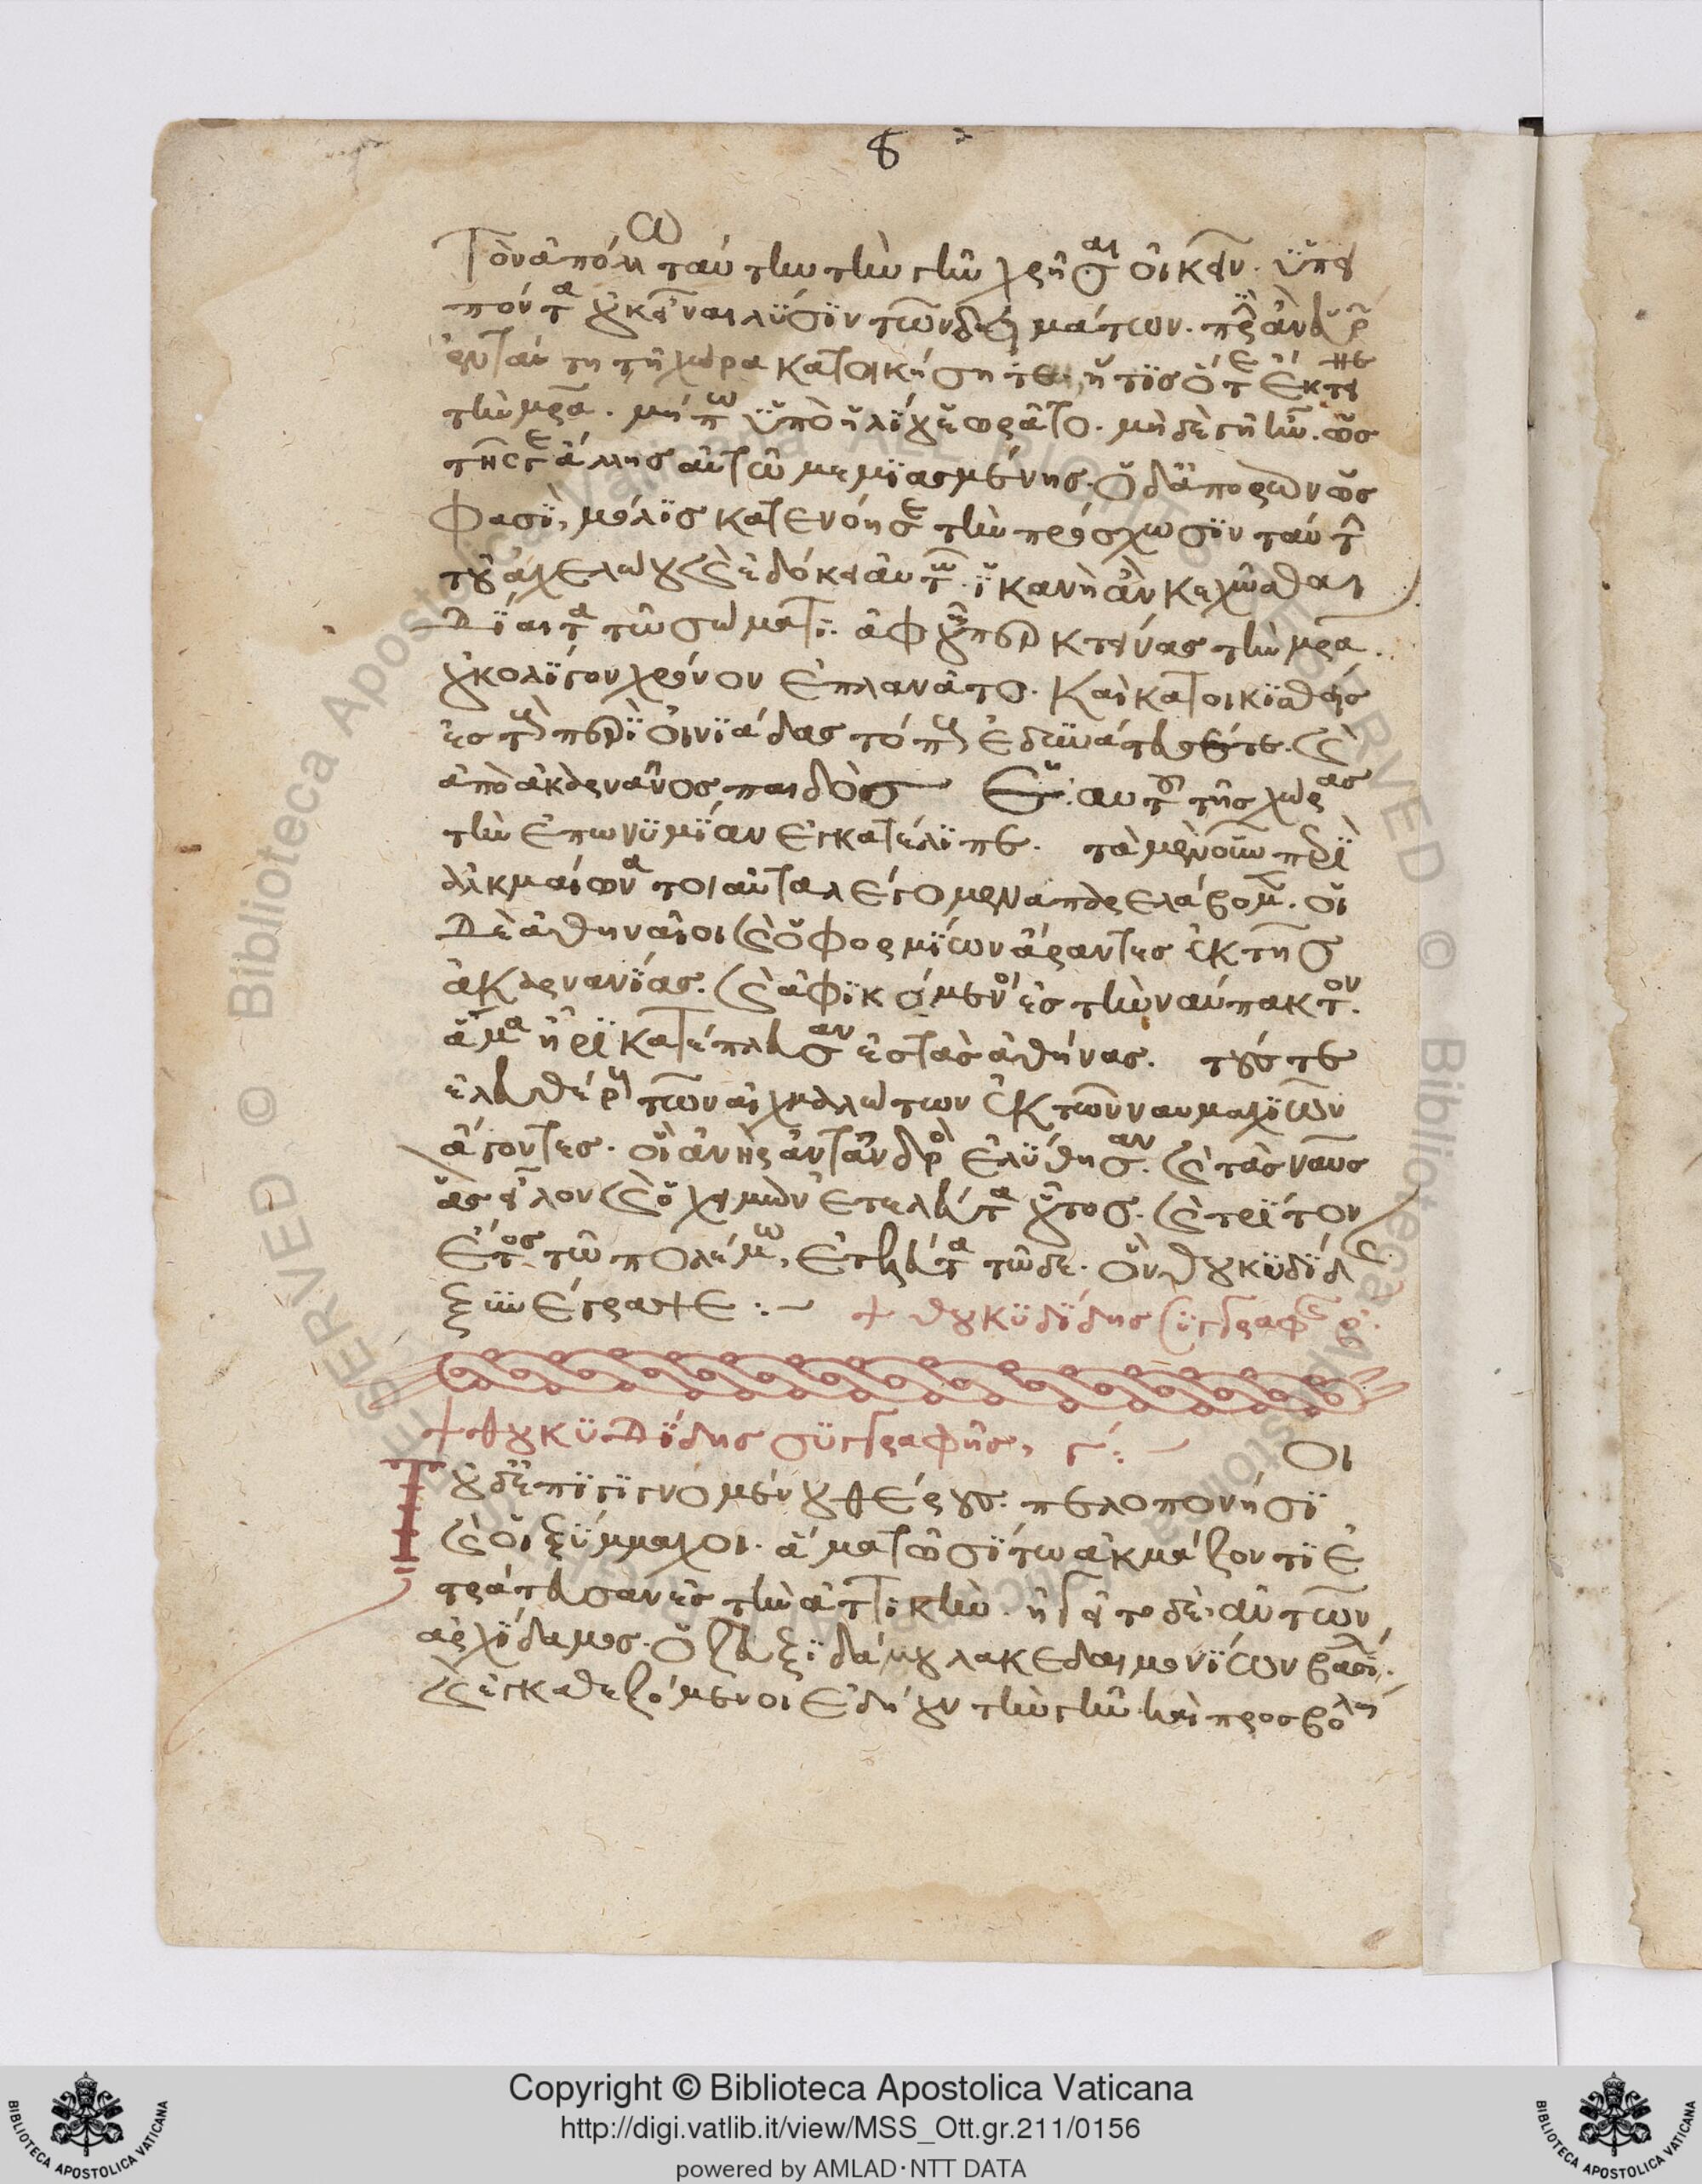 8
Τὸν ἀπόλλω ταύτην τὴν γῆν χρῆσαι οἰκεῖν. ὑπει
πόντα οὐκ εἶναι λύσιν τῶν δειμάτων. πρὶν ἂν εὑρ
ὼν ἐν ταύτῃ τῇ χώρα κατοικήσητε ἥτις ὅτε ἔκτεινε
τὴν μρα. μήπω ὑπὸ ἡλίου ἑωρᾶτο. μηδὲ γῆ ἦν. ὡς
τῆς γε ἄλλης αὐτῶ μεμιασμένης. ὁ δ' ἀπορῶν ὥς
φασὶ, μόλις κατενόησε τὴν πρόσχωσιν ταύτ
τοῦ ἀχελώου καὶ ἐδόκει αὐτῶ ἱκανὴ ἂν κεχῶσθαι
δίαιτα τῶ σώματι. ἀφ' οὗπερ κτείνας τὴν μρα.
οὐκ ὀλίγον χρόνον ἐπλανᾶτο. Καὶ κατοικισθεὶς
ἐς τοὺς περὶ οἰνιάδας τόπους ἐδυνάστευσέ τε. καὶ
ἀπὸ ἀκαρνᾶνος παιδὸς ἑαυτοῦ τῆς χώρας
τὴν ἐπωνυμίαν ἐγκατέλιπε. τὰ μὲν οὖν περὶ
ἀλκμαίωνα τοιαῦτα λεγόμενα παρελάβομεν. οἱ
δὲ ἀθηναῖοι καὶ ὁ φορμίων ἄραντες ἐκ τῆς
ἀκαρνανίας. καὶ ἀφικόμενοι ἐς τὴν ναύπακτον.
ἅμα ἦρι κατέπλευσαν ἐς τὰς ἀθήνας. τούς τε
ἐλευθέρους τῶν αἰχμαλώτων ἐκ τῶν ναυμαχιῶν
ἄγοντες. οἳ ἀνὴρ ἀντ' ἀνδρὸς ἐλύθησαν. καὶ τὰς ναῦς
ἃς εἷλον καὶ ὁ χειμὼν ἐτελεύτα οὗτος. καὶ τρίτον
ἔτος τῶ πολέμω, ἐτελεύτα τῶδε. ὃν θουκυδίδης
ξυνέγραψε :~ + θουκυδίδης συγγραφῆς β.
+ θουκυδίδης συγγραφῆς, γ: ~
Τοῦ δ' ἐπιγιγνομένου θέρους. πελοπονήσιοι
καὶ οἱ ξύμμαχοι. ἅμα τῶ σίτω ἀκμάζοντι ἐ
στράτευσαν ἐς τὴν ἀττικήν. ἡγεῖτο δὲ αὐτῶν
ἀρχίδαμος. ὁ ζευξιδάμου λακεδαιμονίων βασι.
καὶ ἐγκαθεζόμενοι ἐδῄουν τὴν γῆν καὶ προσβολὴ
Copyright © Biblioteca Apostolica Vaticana
http://digi.vatlib.it/view/MSS_Ott.gr.211/0156
powered by AMLAD·NTT DATA